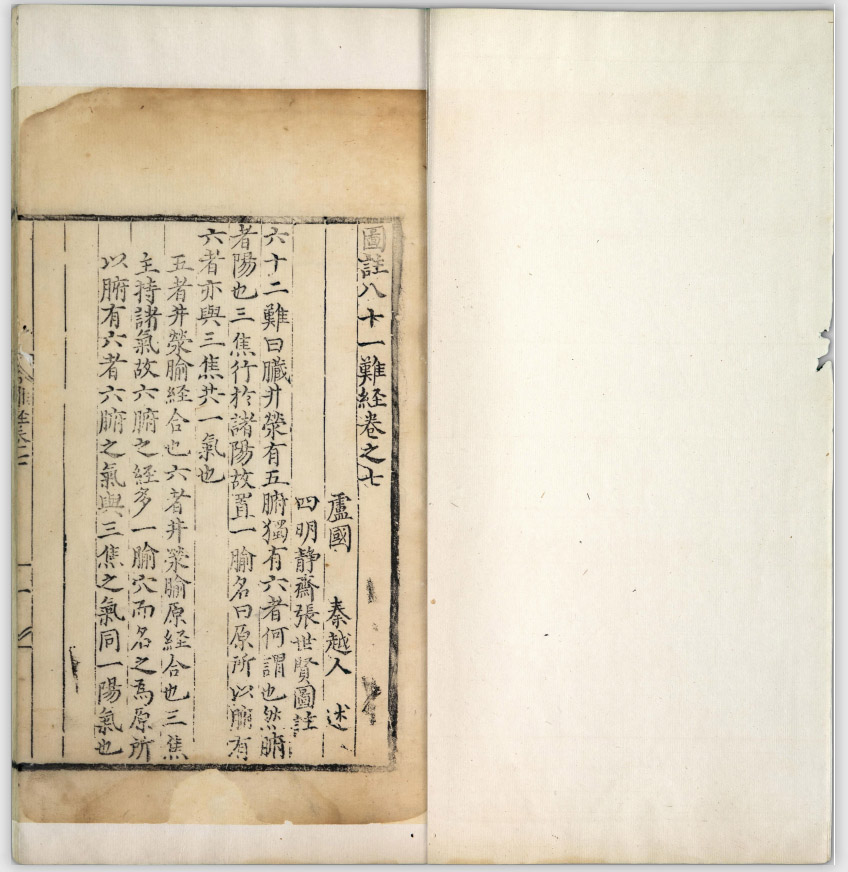 圖註八十一難経卷之七
盧國　秦越人　述
四明靜齋張世賢圖註
六十二難曰臓井滎有五腑獨有六者何謂也然腑
者陽也三焦行扵諸陽故置一腧名曰原所以腑有
六者亦與三焦共一氣也
五者井滎腧経合也六者井滎腧原経合也三焦
主持諸氣故六腑之経多一腧穴而名之爲原所
以腑有六者六腑之氣與三焦之氣同一陽氣也